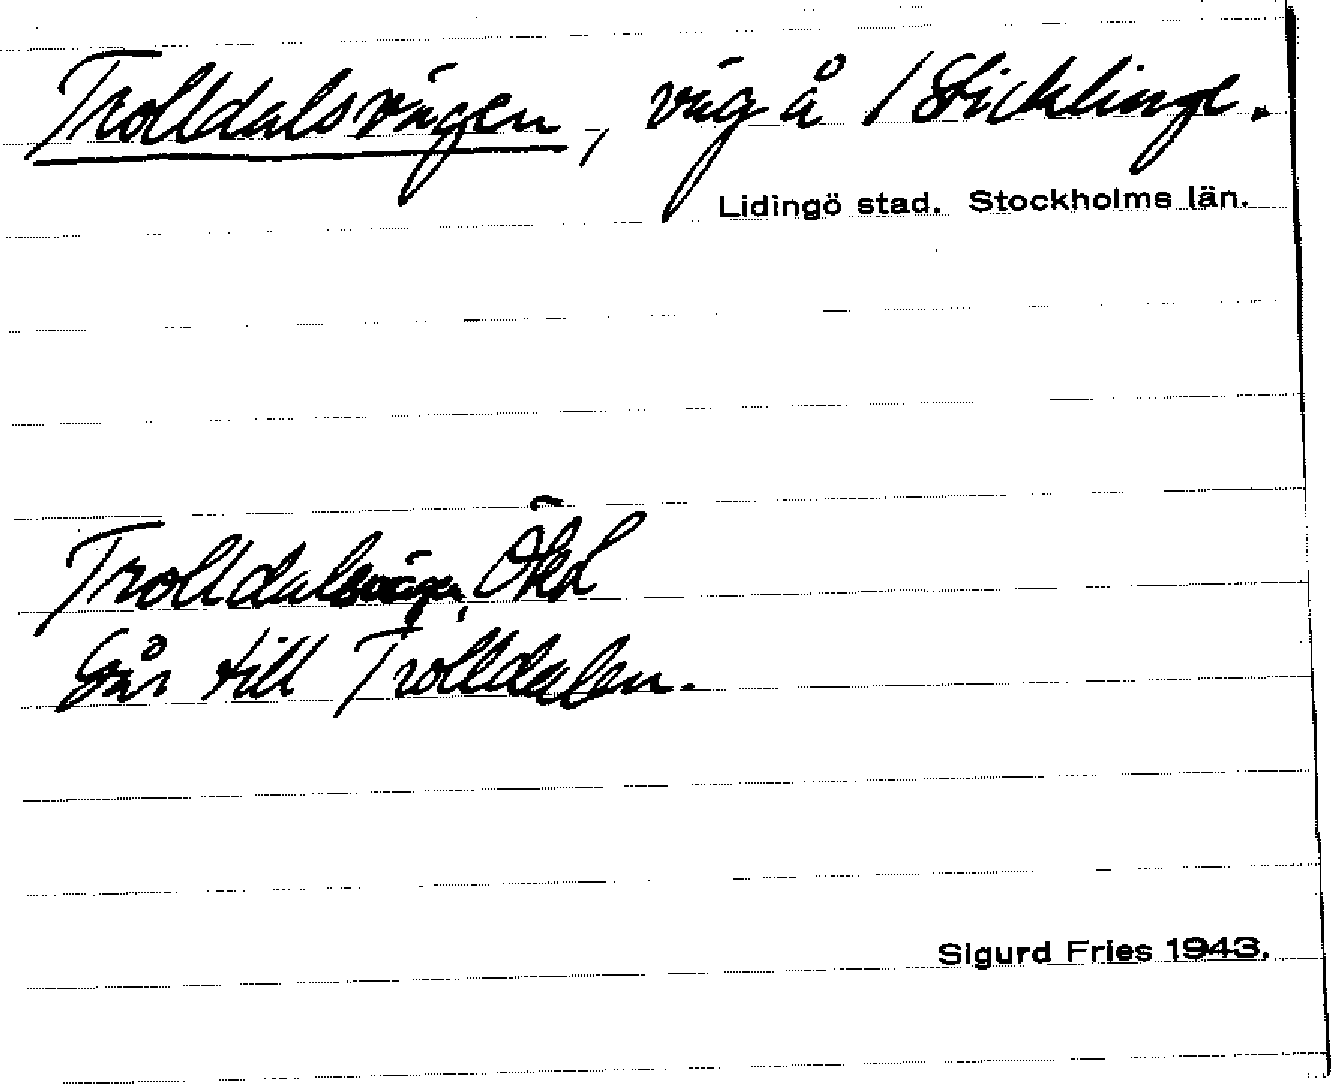 Trolldalsvägen, väg å / Sticklinge.
Lidingö stad. Stockholms län.
Trolldalsvägen, ÖkL
Går till Trolldalen.
Sigurd Fries 1943.